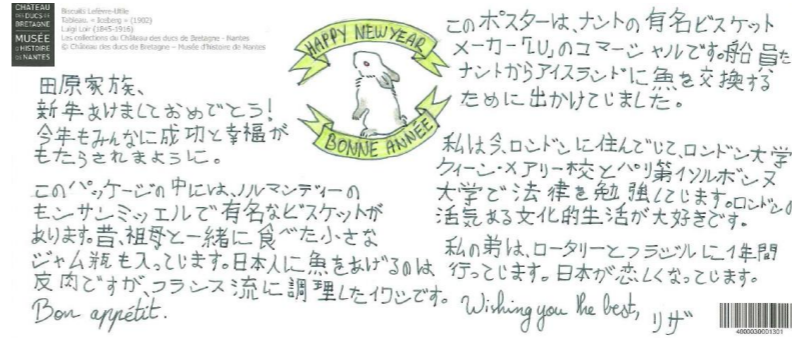 CHÂTEAU
DES DUCS DE
BRETAGNE
MUSÉE
D'HISTOIRE
DE NANTES
Biscuits Lefèvre-Utile
Tableau. « Iceberg » (1902)
Luigi Loir (1845-1916)
Les collections du Château des ducs de Bretagne - Nantes
© Château des ducs de Bretagne – Musée d'histoire de Nantes
HAPPY NEW YEAR
BONNE ANNÉE
田原家族、
新年あけましておめでとう!
今年もみんなに成功と幸福が
もたらされまように。
このパッケージの中には、ノルマンディーの
モンサンミッエルで有名なビスケットが
あります。昔、祖母と一緒に食べた小さな
ジャム瓶も入ってじます。日本人に魚をあげるのは
皮肉ですが、フランス流に調理したイワシです。
Bon appétit.
このポスターは、ナントの有名ビスケット
メーカー「LU」のコマーシャルです。船員た
ナントからアイスランドに魚を交換する
ために出かけてじました。
私は今、ロンドンに住んでじて、ロンドン大学
クィーン・メアリー校とパリ第1ソルボンヌ
大学で法律を勉強してじます。ロンドンの
活気ある文化的生活が大好きです。
私の弟は、ロータリーとブラジルに1年間
行ってじます。日本が恋しくなってじます。
Wishing you the best, リザ
4600030001301